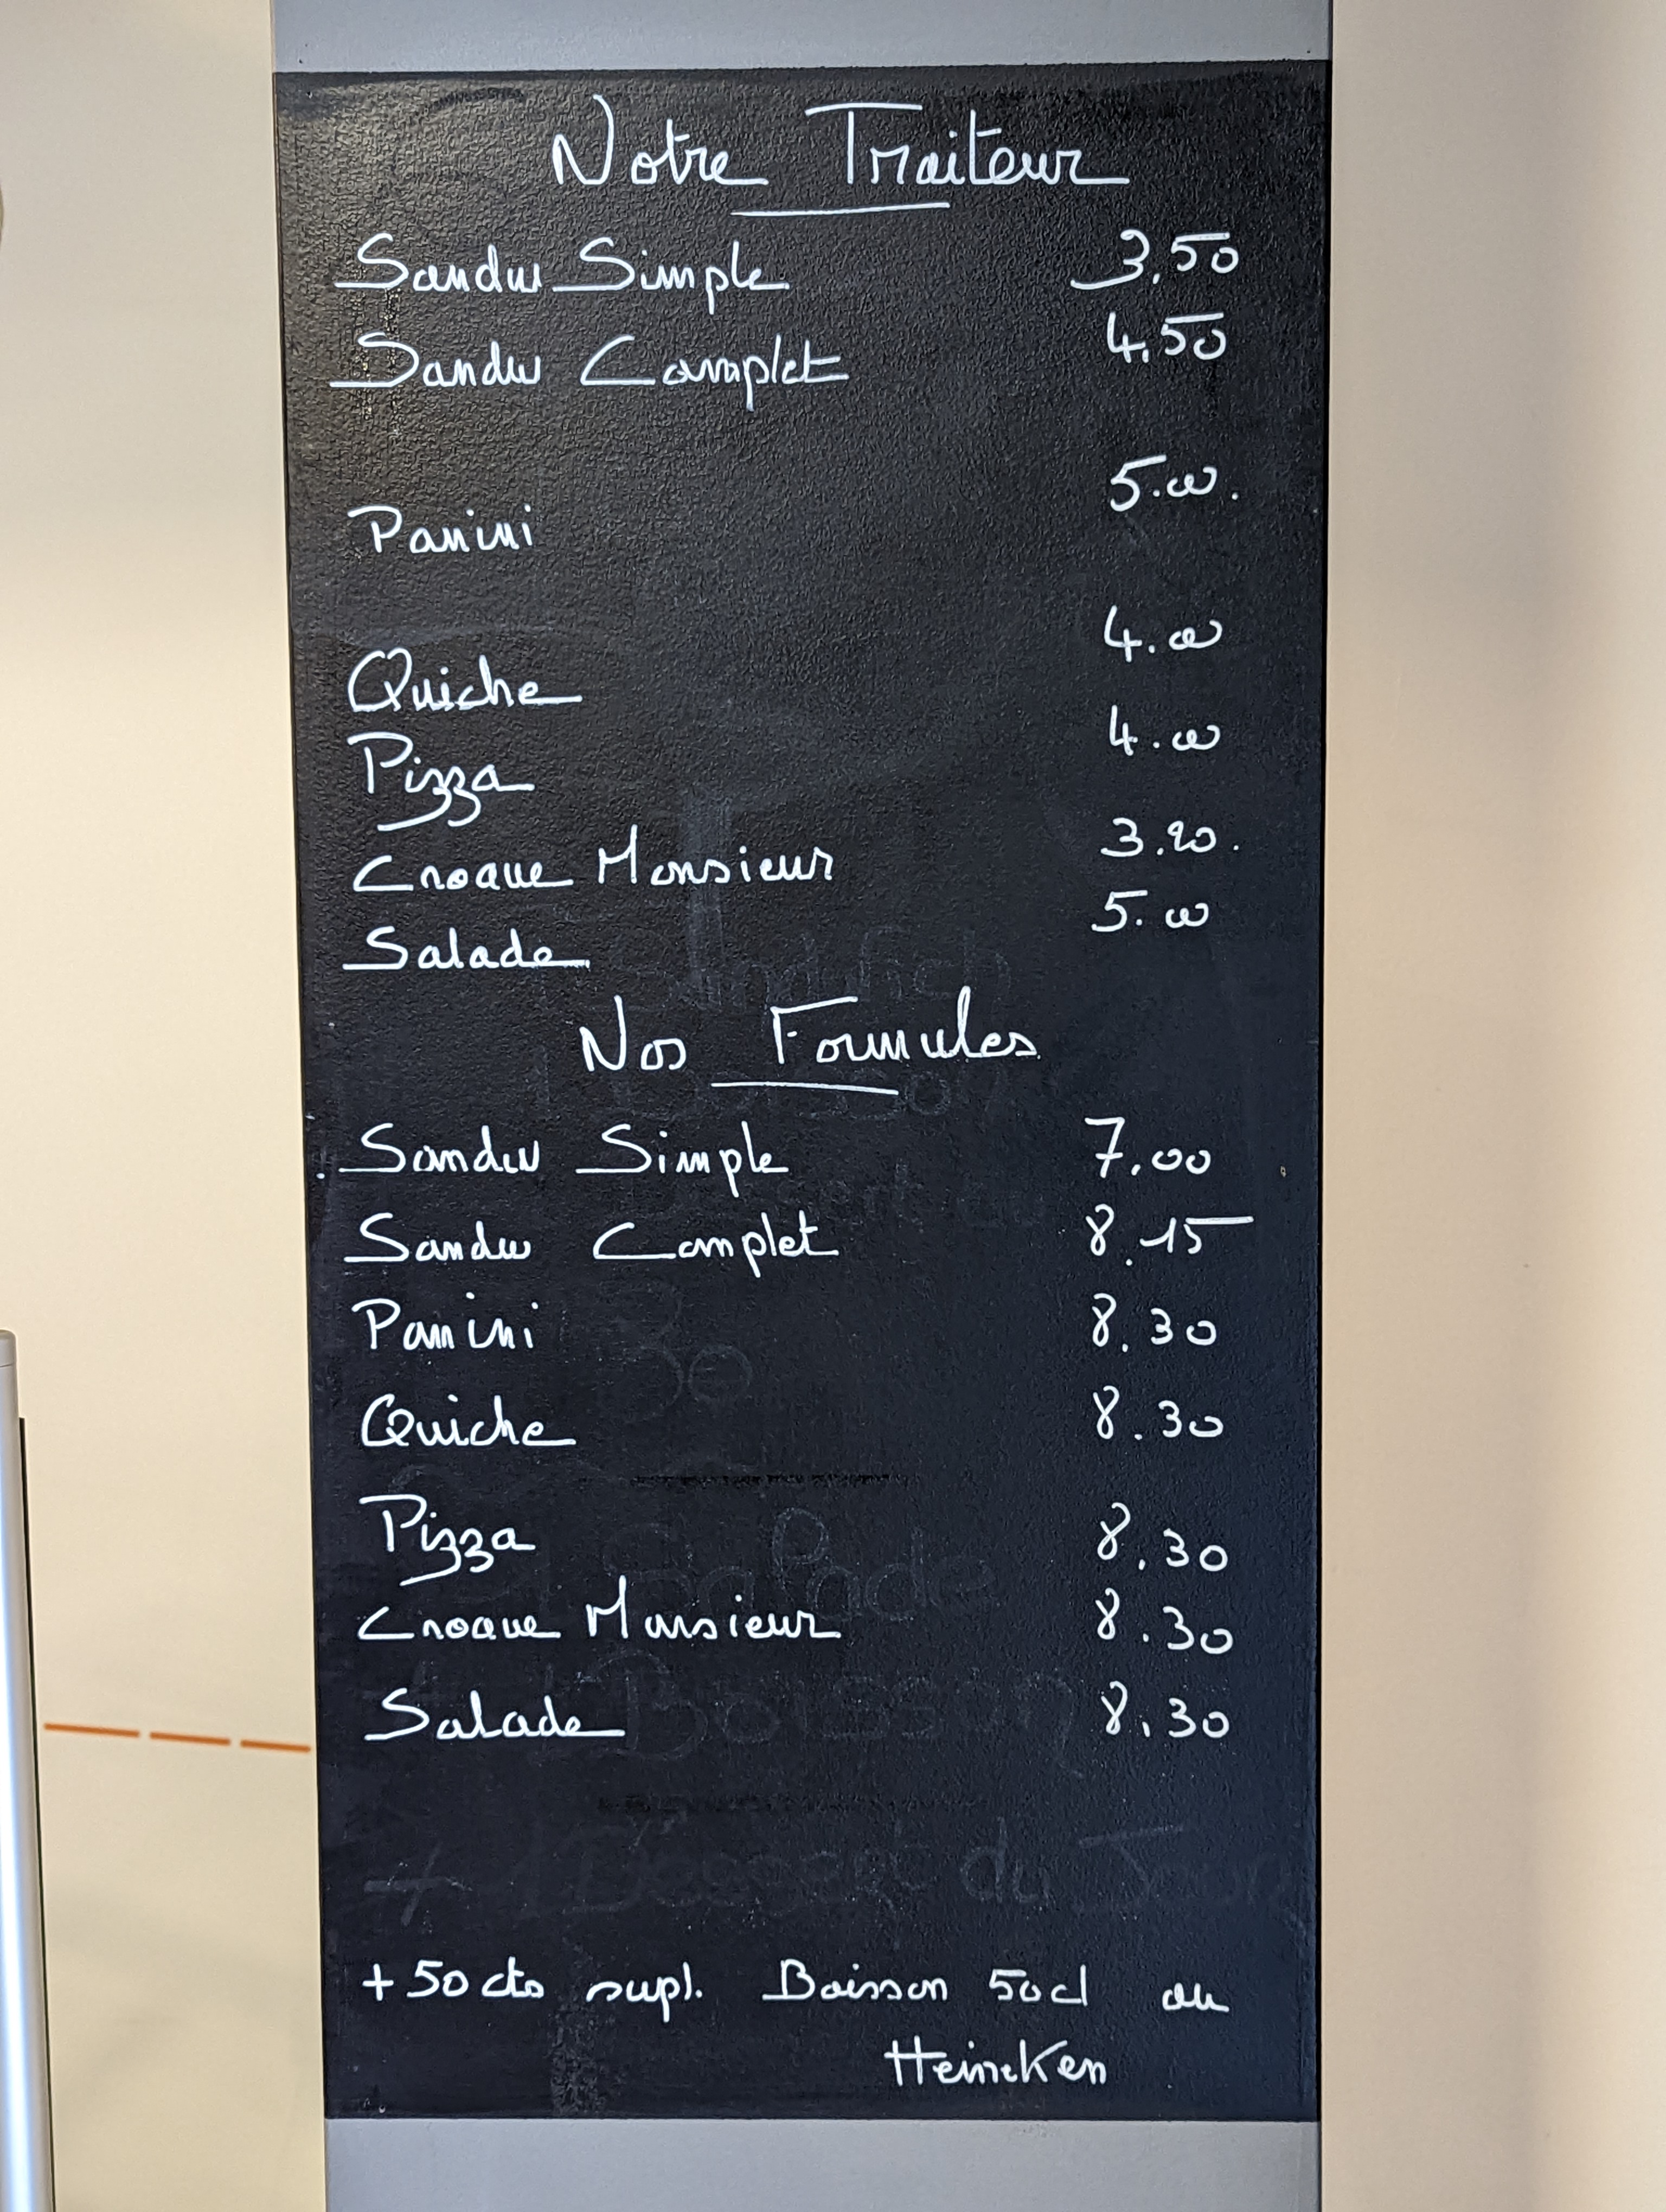 Notre Traiteur
Sandw Simple 3,50
Sandw Complet 4,50
Panini 5.00.
Quiche 4.00
Pizza 4.00
Croque Monsieur 3.20.
Salade 5.00
Nos Formules
Sandw Simple 7,00
Sandw Complet 8.15
Panini 8.30
Quiche 8.30
Pizza 8.30
Croque Monsieur 8.30
Salade 8.30
+ 50 cts supl. Boisson 50cl ou
Heineken